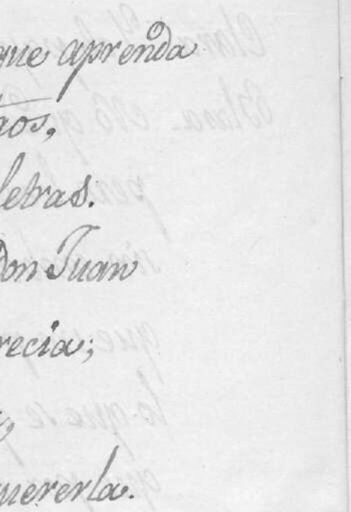 que aprenda
gos,
letras.
Don Juan
recia;
quererla.